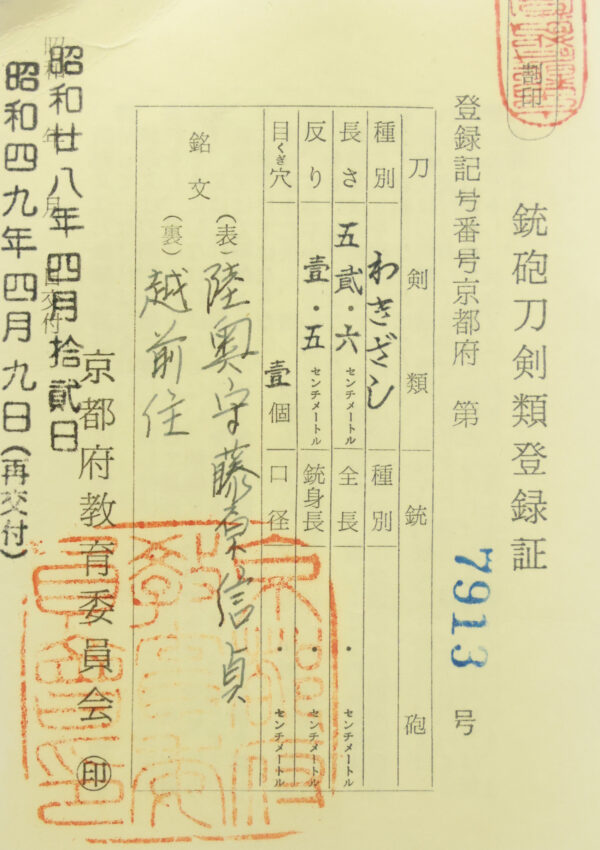 割印
銃砲刀剣類登録証
登録記号番号京都府 第 7913 号
刀剣類 銃砲
種別 わきざし 種別
長さ 五貳・六センチメートル 全長 ・ センチメートル
反り 壹・五センチメートル 銃身長 ・ センチメートル
目くぎ穴 壹個 口径 ・ センチメートル
銘文 (表) 陸奥守藤原信貞
(裏) 越前住
昭和 年 月 日交付
昭和廿八年四月拾貳日
昭和四九年四月九日(再交付)
京都府教育委員会 ㊞